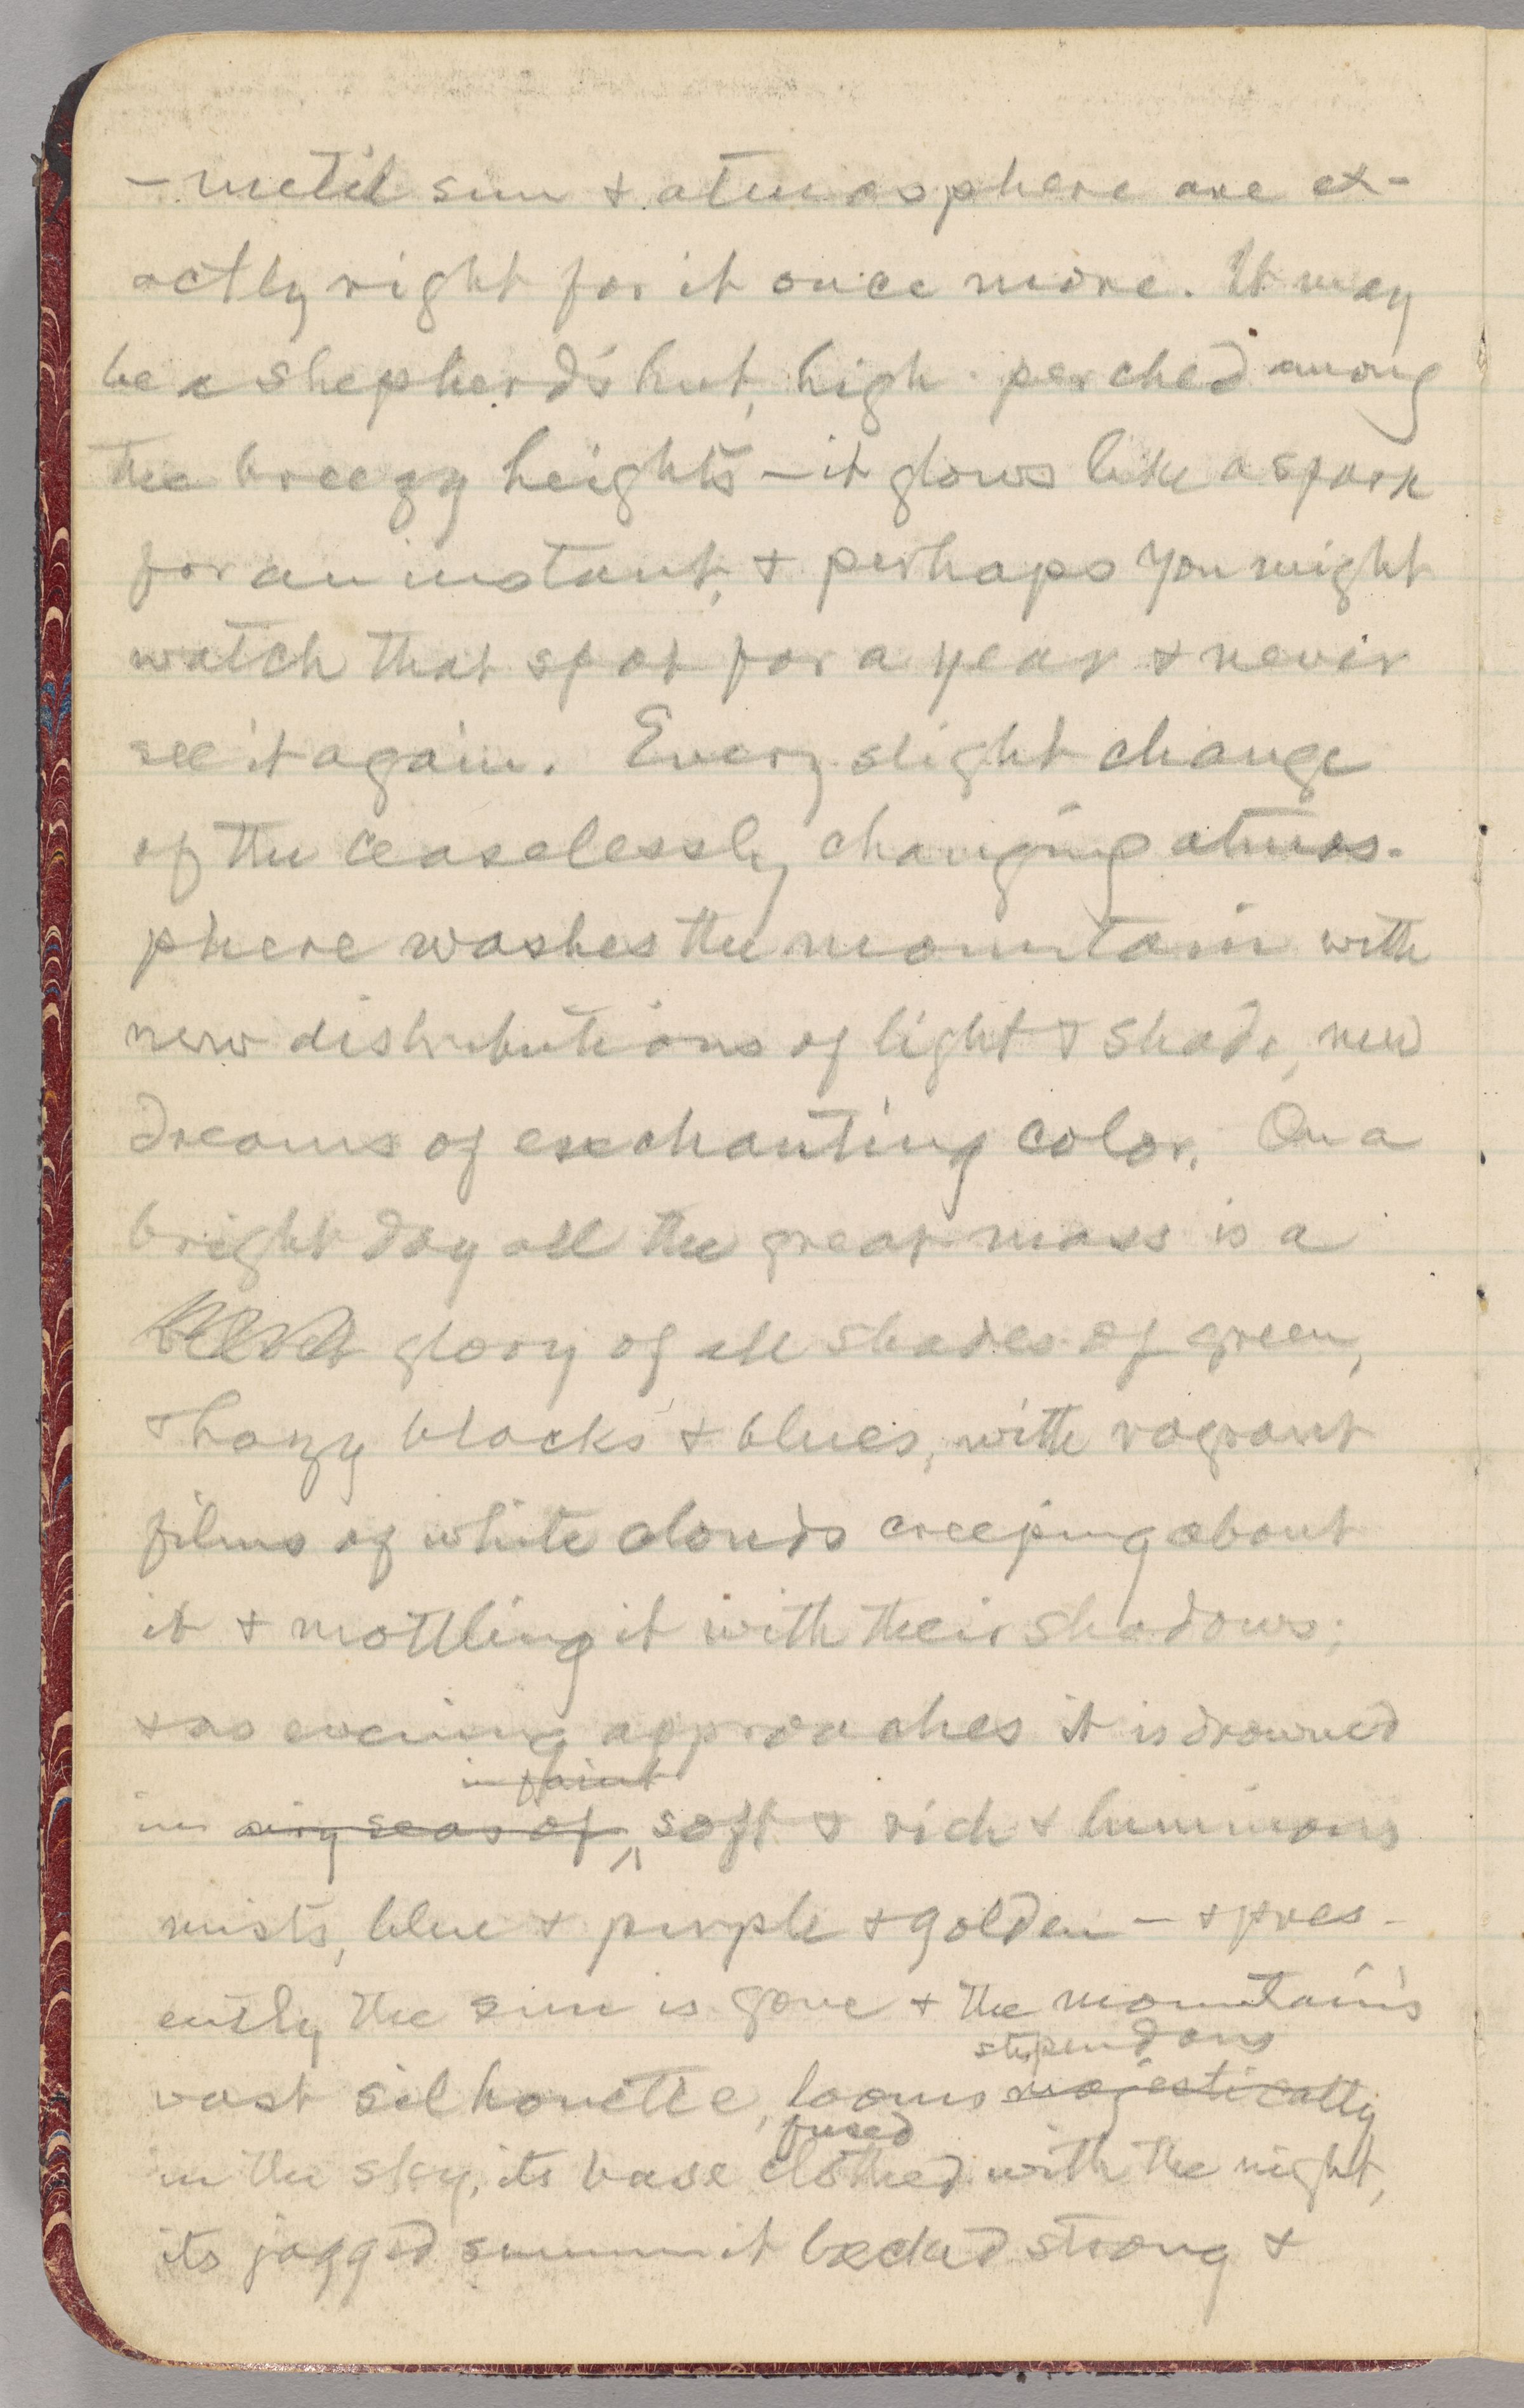 — until sun & atmosphere are ex-
actly right for it once more. It may
be a shepherd's hut, high-perched among
the breezy heights — it glows like a spark
for an instant, & perhaps you might
watch that spot for a year & never
see it again. Every slight change
of the ceaselessly changing atmos-
phere washes the mountain with
new distributions of light & shade, new
dreams of enchanting color. On a
bright day all the great mass is a
glory of all shades of green,
& hazy blacks & blues, with vagrant
films of white clouds creeping about
it & mottling it with their shadows;
& as evening approaches it is drowned
in faint
in airy seas of soft & rich & luminous
mists, blue & purple & golden — & pres-
ently the sun is gone & the mountain's
stupendous
vast silhouette, looms majestically
fused
in the sky, its base clothed with the night,
its jagged summit backed strong &